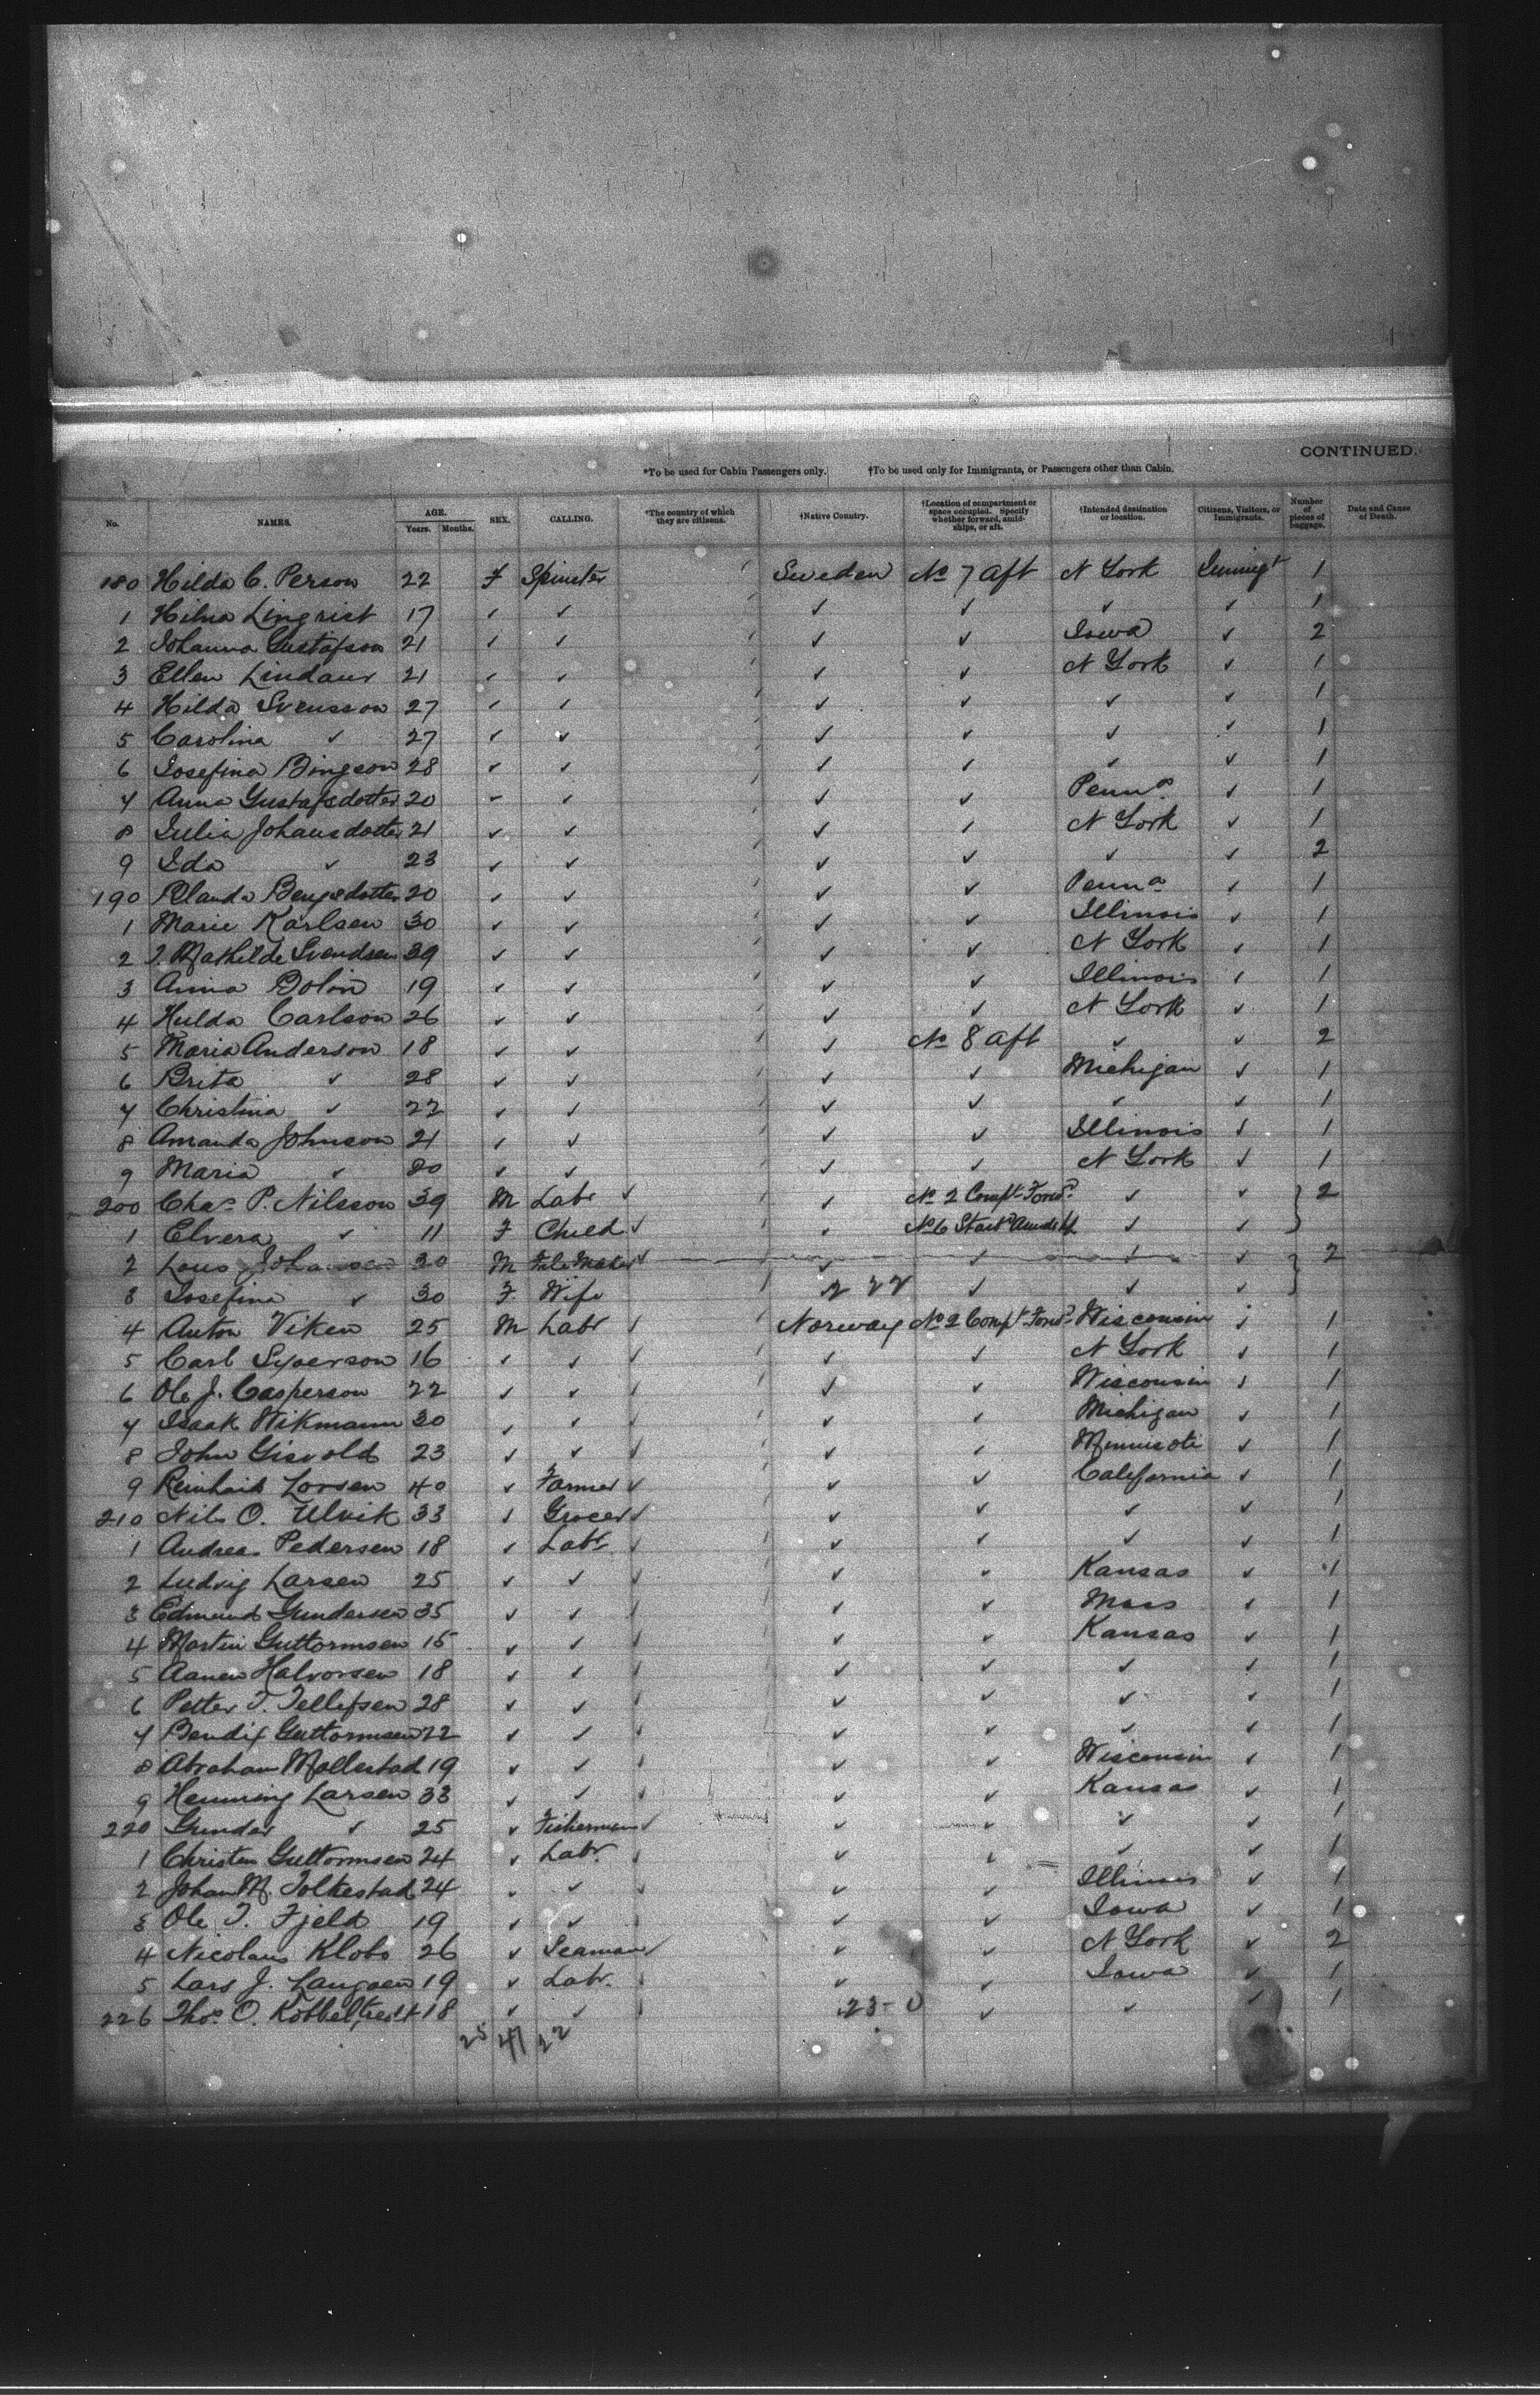 CONTINUED.
*To be used for Cabin Passengers only. †To be used only for Immigrants, or Passengers other than Cabin.
No. NAMES. AGE. Years. Months. SEX. CALLING. *The country of which they are citizens. †Native Country. †Location of compartment or space occupied. Specify whether forward, amidships, or aft. †Intended destination or location. Citizens, Visitors, or Immigrants. Number of pieces of baggage. Date and Cause of Death.
180 Hilda C. Person 22 F Spinster Sweden No 7 Aft N York 1
1 Hilma Lingrist 17 ✓ ✓ ✓ ✓ ✓ ✓ 1
2 Johanna Gustafson 21 ✓ ✓ ✓ ✓ Iowa ✓ 2
3 Ellen Lindaur 21 ✓ ✓ ✓ ✓ N York ✓ 1
4 Hilda Svensson 27 ✓ ✓ ✓ ✓ ✓ ✓ 1
5 Carolina ✓ 27 ✓ ✓ ✓ ✓ ✓ ✓ 1
6 Josefina Bingson 28 ✓ ✓ ✓ ✓ ✓ ✓ 1
7 Anna Gustafsdotter 20 ✓ ✓ ✓ ✓ Penna ✓ 1
8 Julia Johansdotter 21 ✓ ✓ ✓ ✓ N York ✓ 1
9 Ida ✓ 23 ✓ ✓ ✓ ✓ ✓ ✓ 2
190 Bengsdotter 20 ✓ ✓ ✓ ✓ Penna ✓ 1
1 Marie Karlsen 30 ✓ ✓ ✓ ✓ Illinois ✓ 1
2 Mathilde Svendsen 39 ✓ ✓ ✓ ✓ N York ✓ 1
3 Anna Bolin 19 ✓ ✓ ✓ ✓ Illinois ✓ 1
4 Hulda Carlson 26 ✓ ✓ ✓ ✓ N York ✓ 1
5 Maria Anderson 18 ✓ ✓ ✓ No 8 Aft ✓ ✓ 2
6 Brita ✓ 28 ✓ ✓ ✓ ✓ Michigan ✓ 1
7 Christina ✓ 22 ✓ ✓ ✓ ✓ ✓ ✓ 1
8 Amanda Johnson 21 ✓ ✓ ✓ ✓ Illinois ✓ 1
9 Maria ✓ 20 ✓ ✓ ✓ ✓ N York ✓ 1
200 Chas P. Nilsson 39 M Labr ✓ ✓ No 2 Compt Forwd ✓ ✓ 2
1 Elvera ✓ 11 F Child ✓ ✓ No 6 ✓ ✓
2 Louis Johansen 30 M File Maker ✓ ✓ ✓ ✓ ✓ 2
3 Josefina ✓ 30 F Wife 2 22 ✓ ✓ ✓
4 Anton Viken 25 M Labr Norway No 2 Compt Forwd Wisconsin ✓ 1
5 Carl Syverson 16 ✓ ✓ ✓ ✓ N York ✓ 1
6 Ole J. Casperson 22 ✓ ✓ ✓ ✓ Wisconsin ✓ 1
7 Isaak Wikmann 30 ✓ ✓ ✓ ✓ Michigan ✓ 1
8 John Gisvold 23 ✓ ✓ ✓ ✓ Minnisota ✓ 1
9 Reinhard Lorsen 40 ✓ Farmer ✓ ✓ ✓ California ✓ 1
210 Nils O. Ulvik 33 ✓ Grocer ✓ ✓ ✓ ✓ ✓ 1
1 Andreas Pedersen 18 ✓ Labr ✓ ✓ ✓ ✓ 1
2 Ludvig Larsen 25 ✓ ✓ ✓ ✓ Kansas ✓ 1
3 Edmund Gundersen 35 ✓ ✓ ✓ ✓ Mass ✓ 1
4 Martin Guttormsen 15 ✓ ✓ ✓ ✓ Kansas ✓ 1
5 Aanen Halvorsen 18 ✓ ✓ ✓ ✓ ✓ ✓ 1
6 Petter T. Tellefsen 28 ✓ ✓ ✓ ✓ ✓ ✓ 1
7 Bendix Guttormsen 22 ✓ ✓ ✓ ✓ ✓ ✓ 1
8 Abraham Mollestad 19 ✓ ✓ ✓ ✓ Wisconsin ✓ 1
9 Henning Larsen 33 ✓ ✓ ✓ ✓ Kansas ✓ 1
220 Gunder ✓ 25 ✓ Fisherman ✓ ✓ ✓ ✓ ✓ 1
1 Christen Guttormsen 24 ✓ Labr. ✓ ✓ ✓ ✓ 1
2 Johan M. Tolkestad 24 ✓ ✓ ✓ ✓ Illinois ✓ 1
3 Ole T. Fjeld 19 ✓ ✓ ✓ ✓ Iowa ✓ 1
4 Nicolaus Klobs 26 ✓ Seaman ✓ ✓ ✓ N York ✓ 2
5 Lars J. Langoen 19 ✓ Labr. ✓ ✓ Iowa ✓ 1
226 Thos. O. 18 ✓ ✓ 23-0 ✓ ✓ ✓ 1
25 47 22